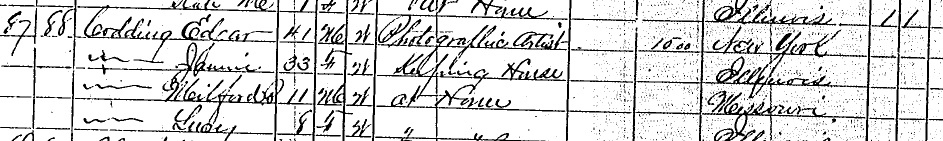 1 F W at Home Illinois 1 1
87 88 Codding Edgar 41 M W Photographic Artist 1000 New York
— 33 F W Keeping House Illinois
— Milford 11 M W at Home Missouri
— Lucy 8 F W " "